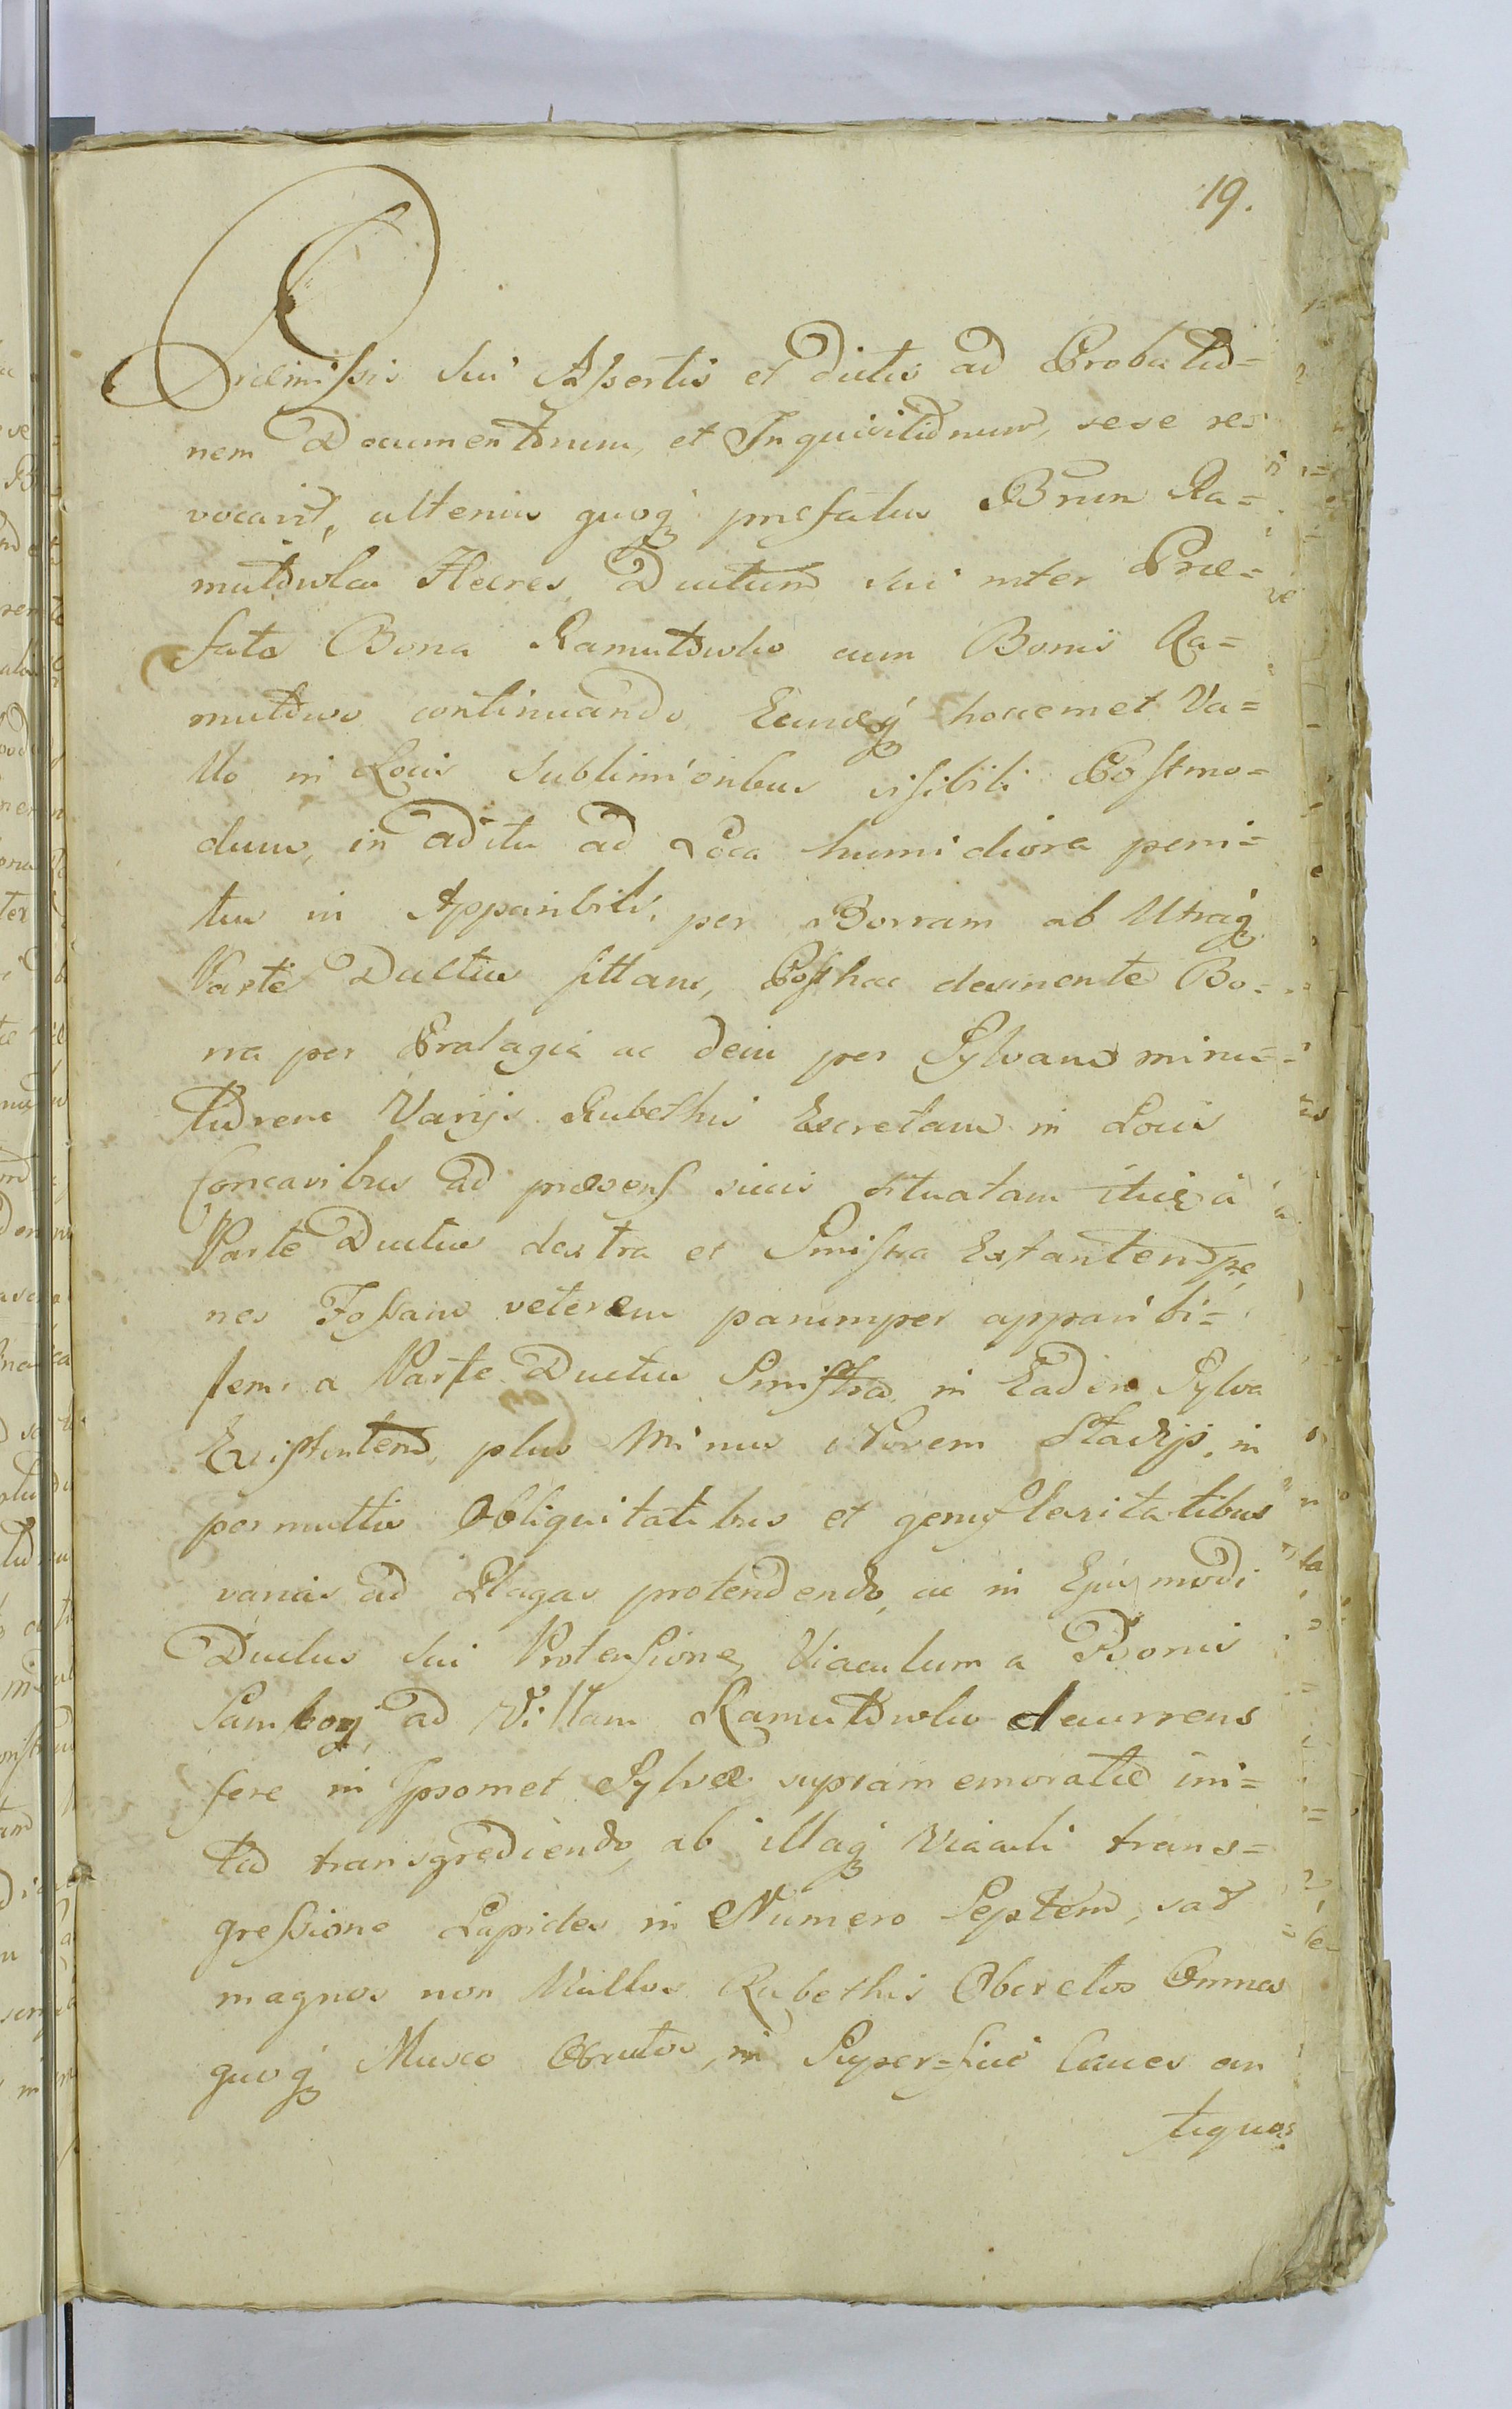 19.
Præmissis sui Assertis et dictis ad Probatio=
nem Documentorum, et Inquisitionum, sese re=
vocavit, ulterius quoq præfatus Bnrm Ra=
mutowka Hæres, Ductum sui inter Præ=
fata Bona Ramutowko cum Bonis Ra=
mutowo continuando, hocemet Va=
llo in Locis Sublimioribus visibili Postmo=
dum, in aditu ad Loca humidiora peni=
tus in Apparibili, per Borram ab Utraq
Parte Ductus sittam, Posthac desinente Bo=
rra per Pratagia ac dein per Sylvam minu=
tiorem Varijs Rubethis Excretam in Locis
Concavibus ad præsens siccis situatam itidē à
Parte Ductus dextra et Sinistra Extantem pe
nes Fossam veterem parumper apparibi=
lem, a Parte Ductus Sinistra, in Eadem Sylva
Existentem, plus Minus Novem Stadijs, in
permultis Obliquitatibus et genuflexitatibus
varias ad Plagas protendendo, ac in Ejusmodi
Ductus sui Protensione, Viaculum a Bonis
ad Villam Ramutowko decurrens
fere in Ipsomet Sylvæ supramemoratæ ini=
tio transgrediendo, ab illaq Viaculi trans=
gressione Lapides in Numero Septem, sat
magnos non Nullos Rubethis Obcretos Omnes
quoq Musco Obrutos, in Super=ficie Cruces an
tiquas